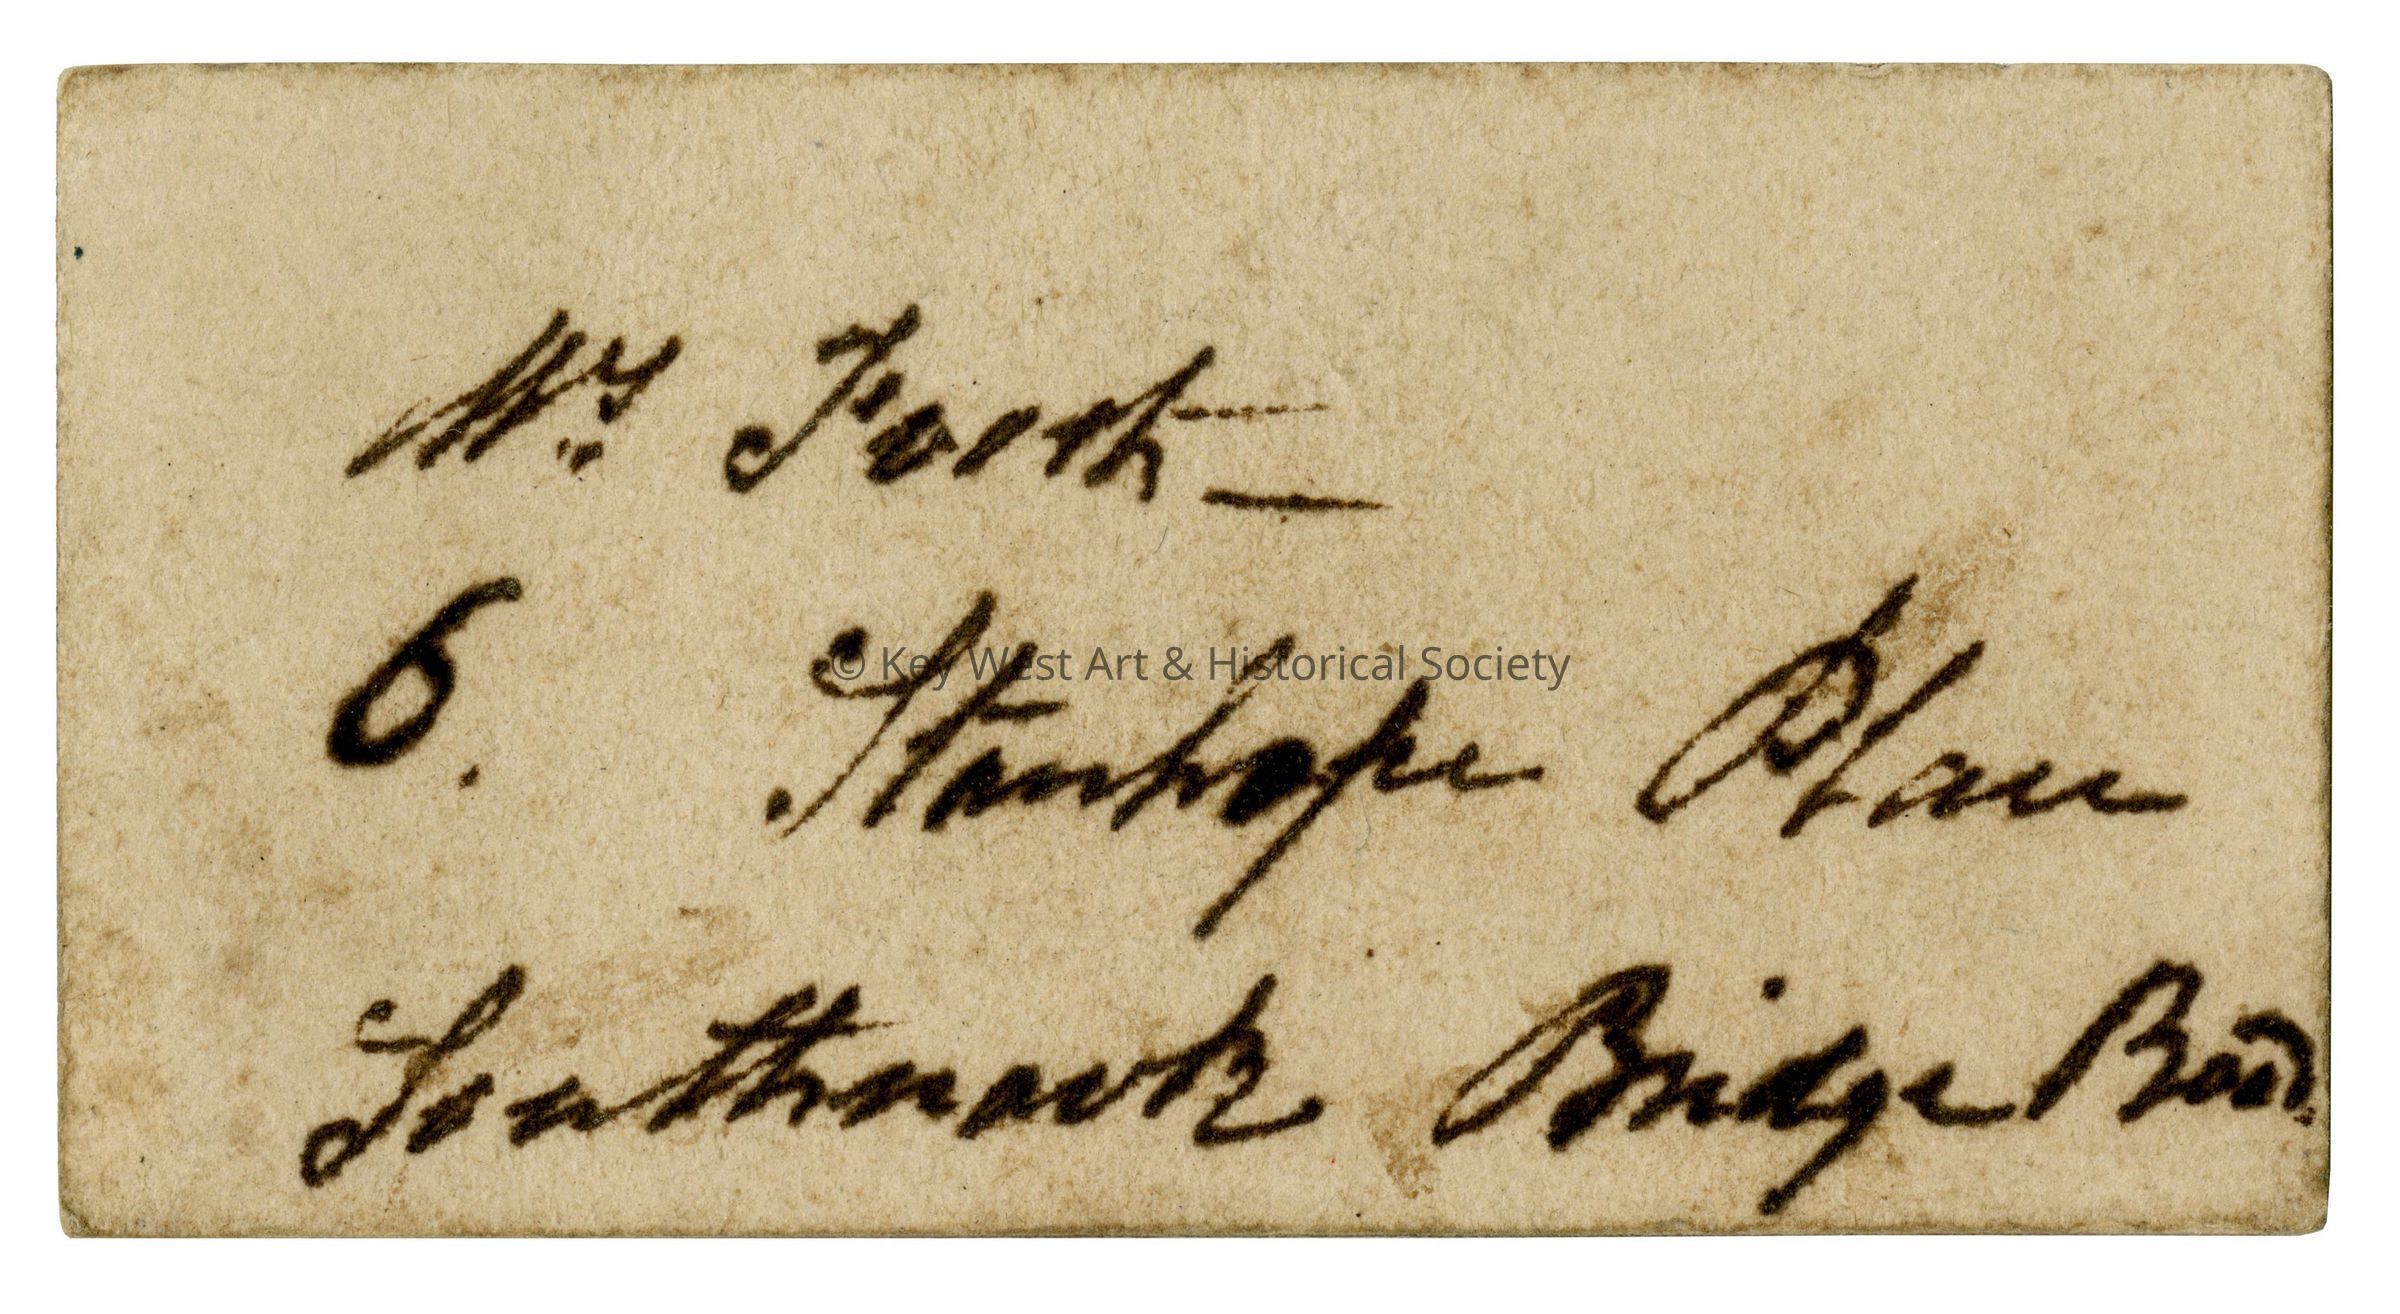 Mrs. Forth
6. Stanhope Place
© Key West Art & Historical Society
Southwark Bridge Road.